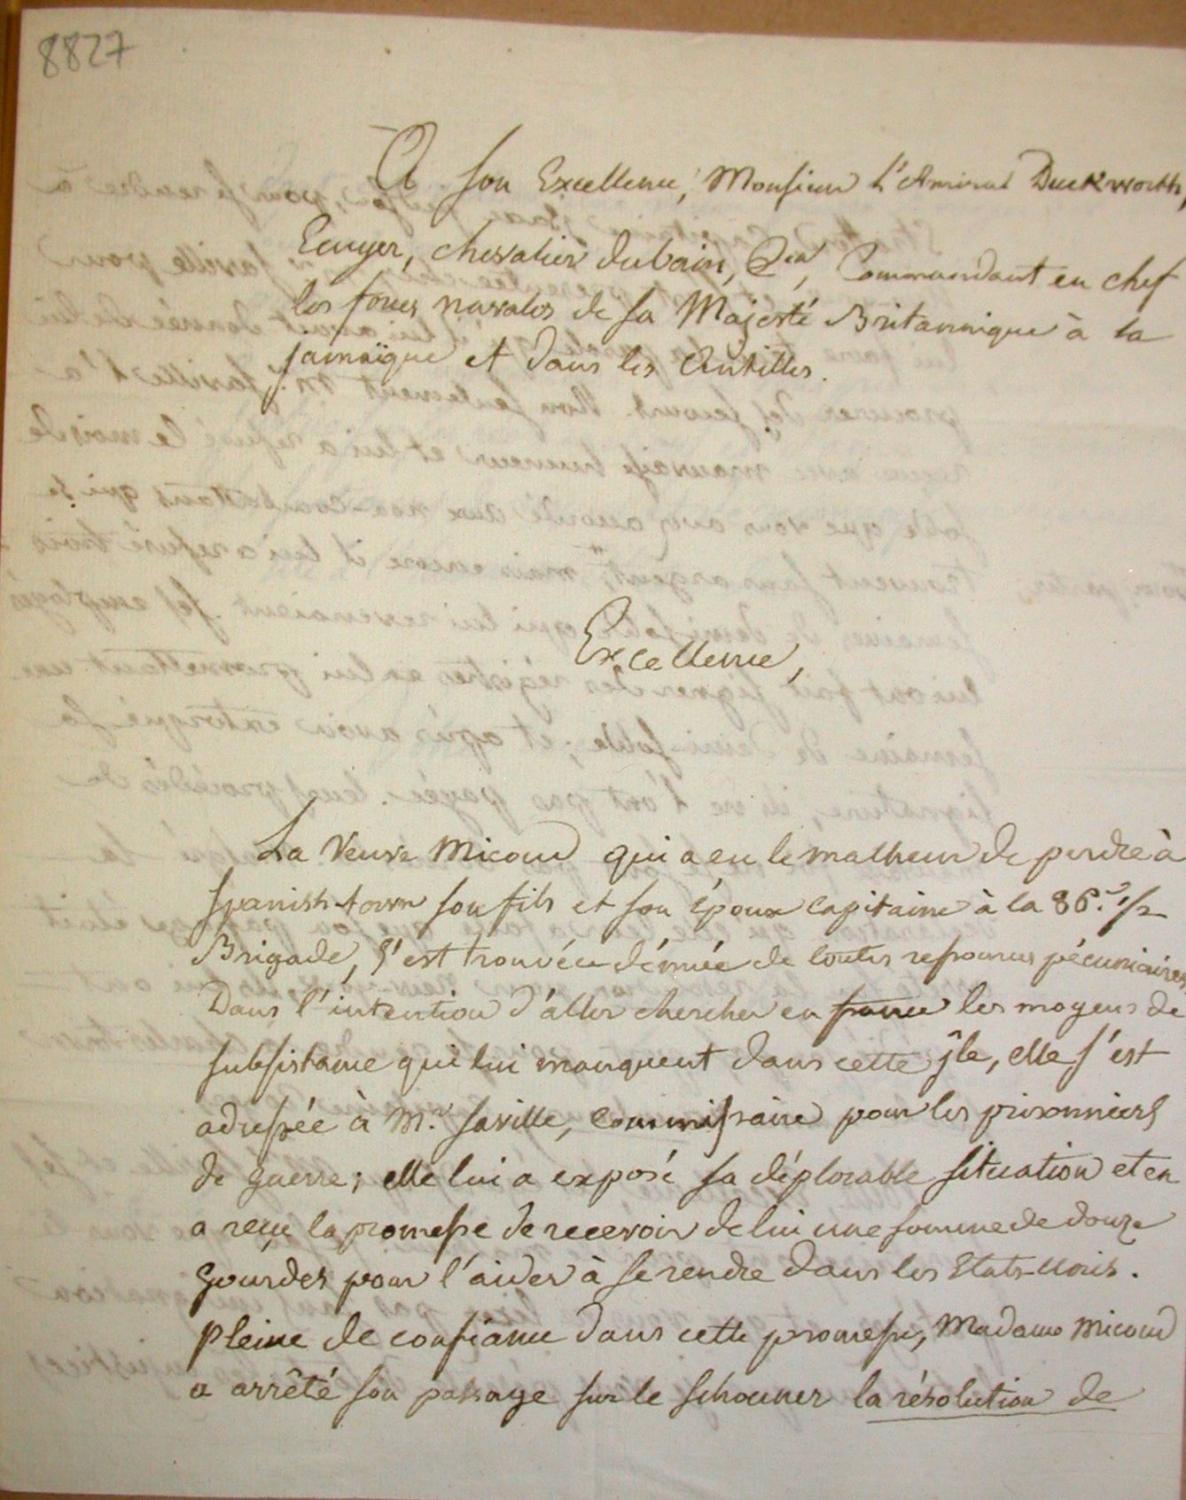 8827
A son Excellence, Monsieur l'Amiral Duckworth,
Ecuyer, chevalier du bain, &ca, Commandant en chef
les forces navales de sa Majesté Britannique à la
jamaïque et dans les Antilles.
Excellence,
La Veuve Micoud qui a eu le malheur de perdre à
Spanish-town son fils et son époux capitaine à la 86.e 1/2
Brigade, s'est trouvée dénuée de toutes ressources pécuniaires.
Dans l'intention d'aller chercher en france les moyens de
subsistance qui lui manquent dans cette jle, elle s'est
adressée à M.r Saville, Commissaire pour les prisonniers
de guerre; elle lui a exposé sa déplorable situation et en
a reçu la promesse de recevoir de lui une somme de douze
gourdes pour l'aider à se rendre dans les Etats-unis.
pleine de confiance dans cette promesse, Madame Micoud
a arrêté son passage sur le schouner la résolution de